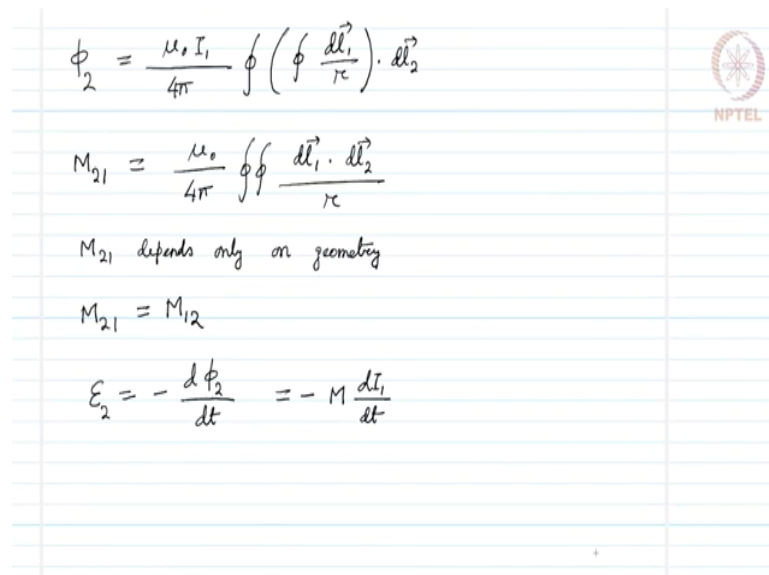 ϕ₂ = μ₀ I₁ / 4π ∮ ( ∮ dl⃗₁ / r ) · dl⃗₂
NPTEL
M₂₁ = μ₀ / 4π ∮∮ dl⃗₁ · dl⃗₂ / r
M₂₁ depends only on geometry
M₂₁ = M₁₂
ε₂ = − dϕ₂ / dt = − M dI₁ / dt